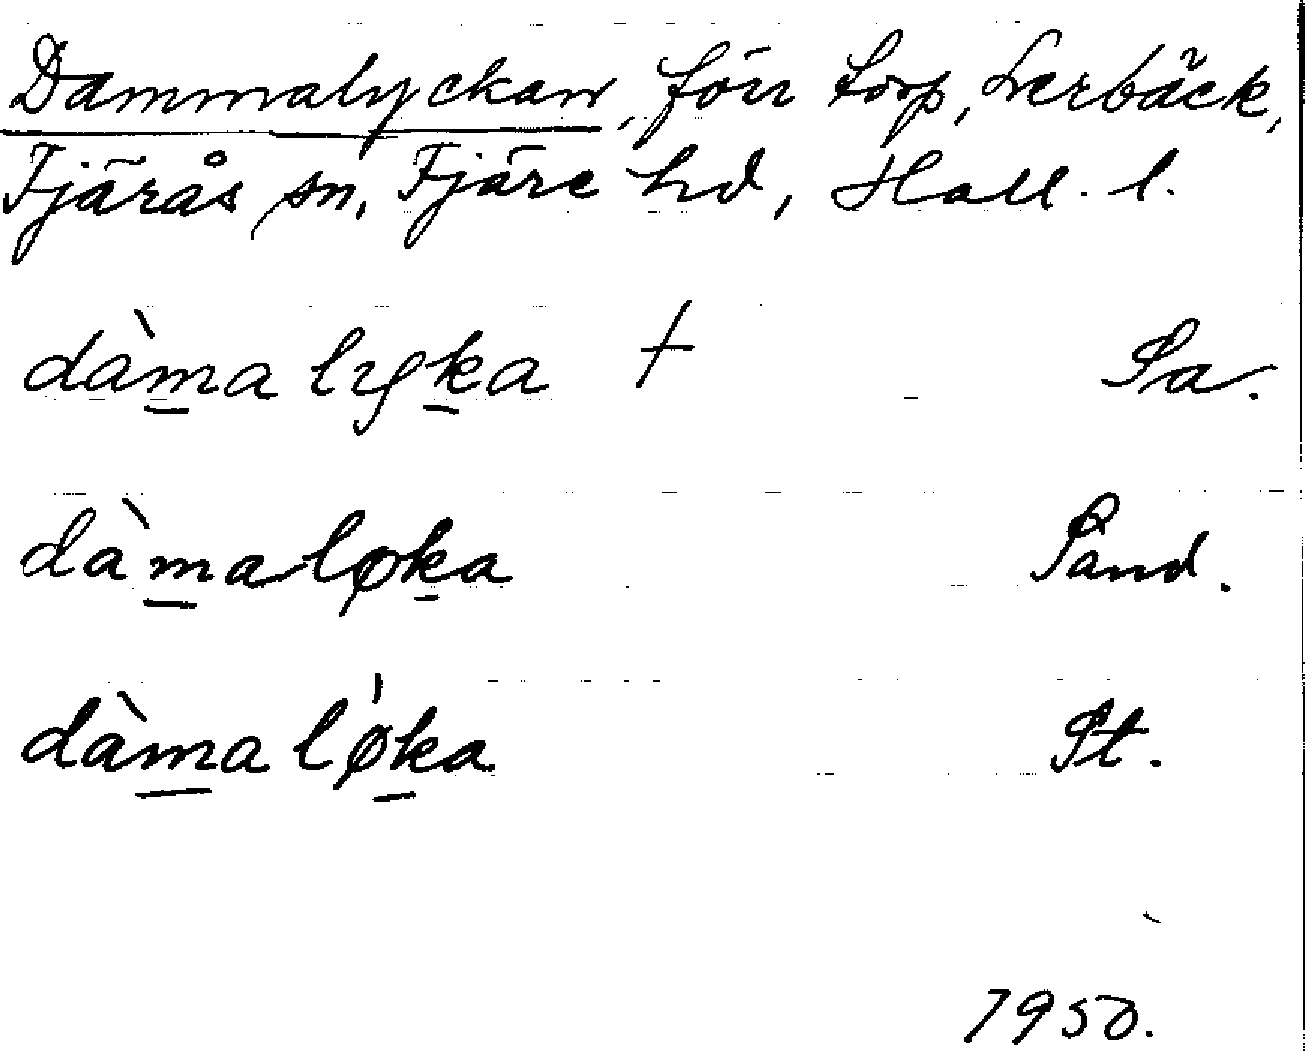 Dammalyckan, förr torp, Lerbäck,
Fjärås sn, Fjäre hd, Hall. l.
dàm̱a lyḵa † Sa.
dàm̱a løḵa Sand.
dàm̱a lǿḵa St.
1950.